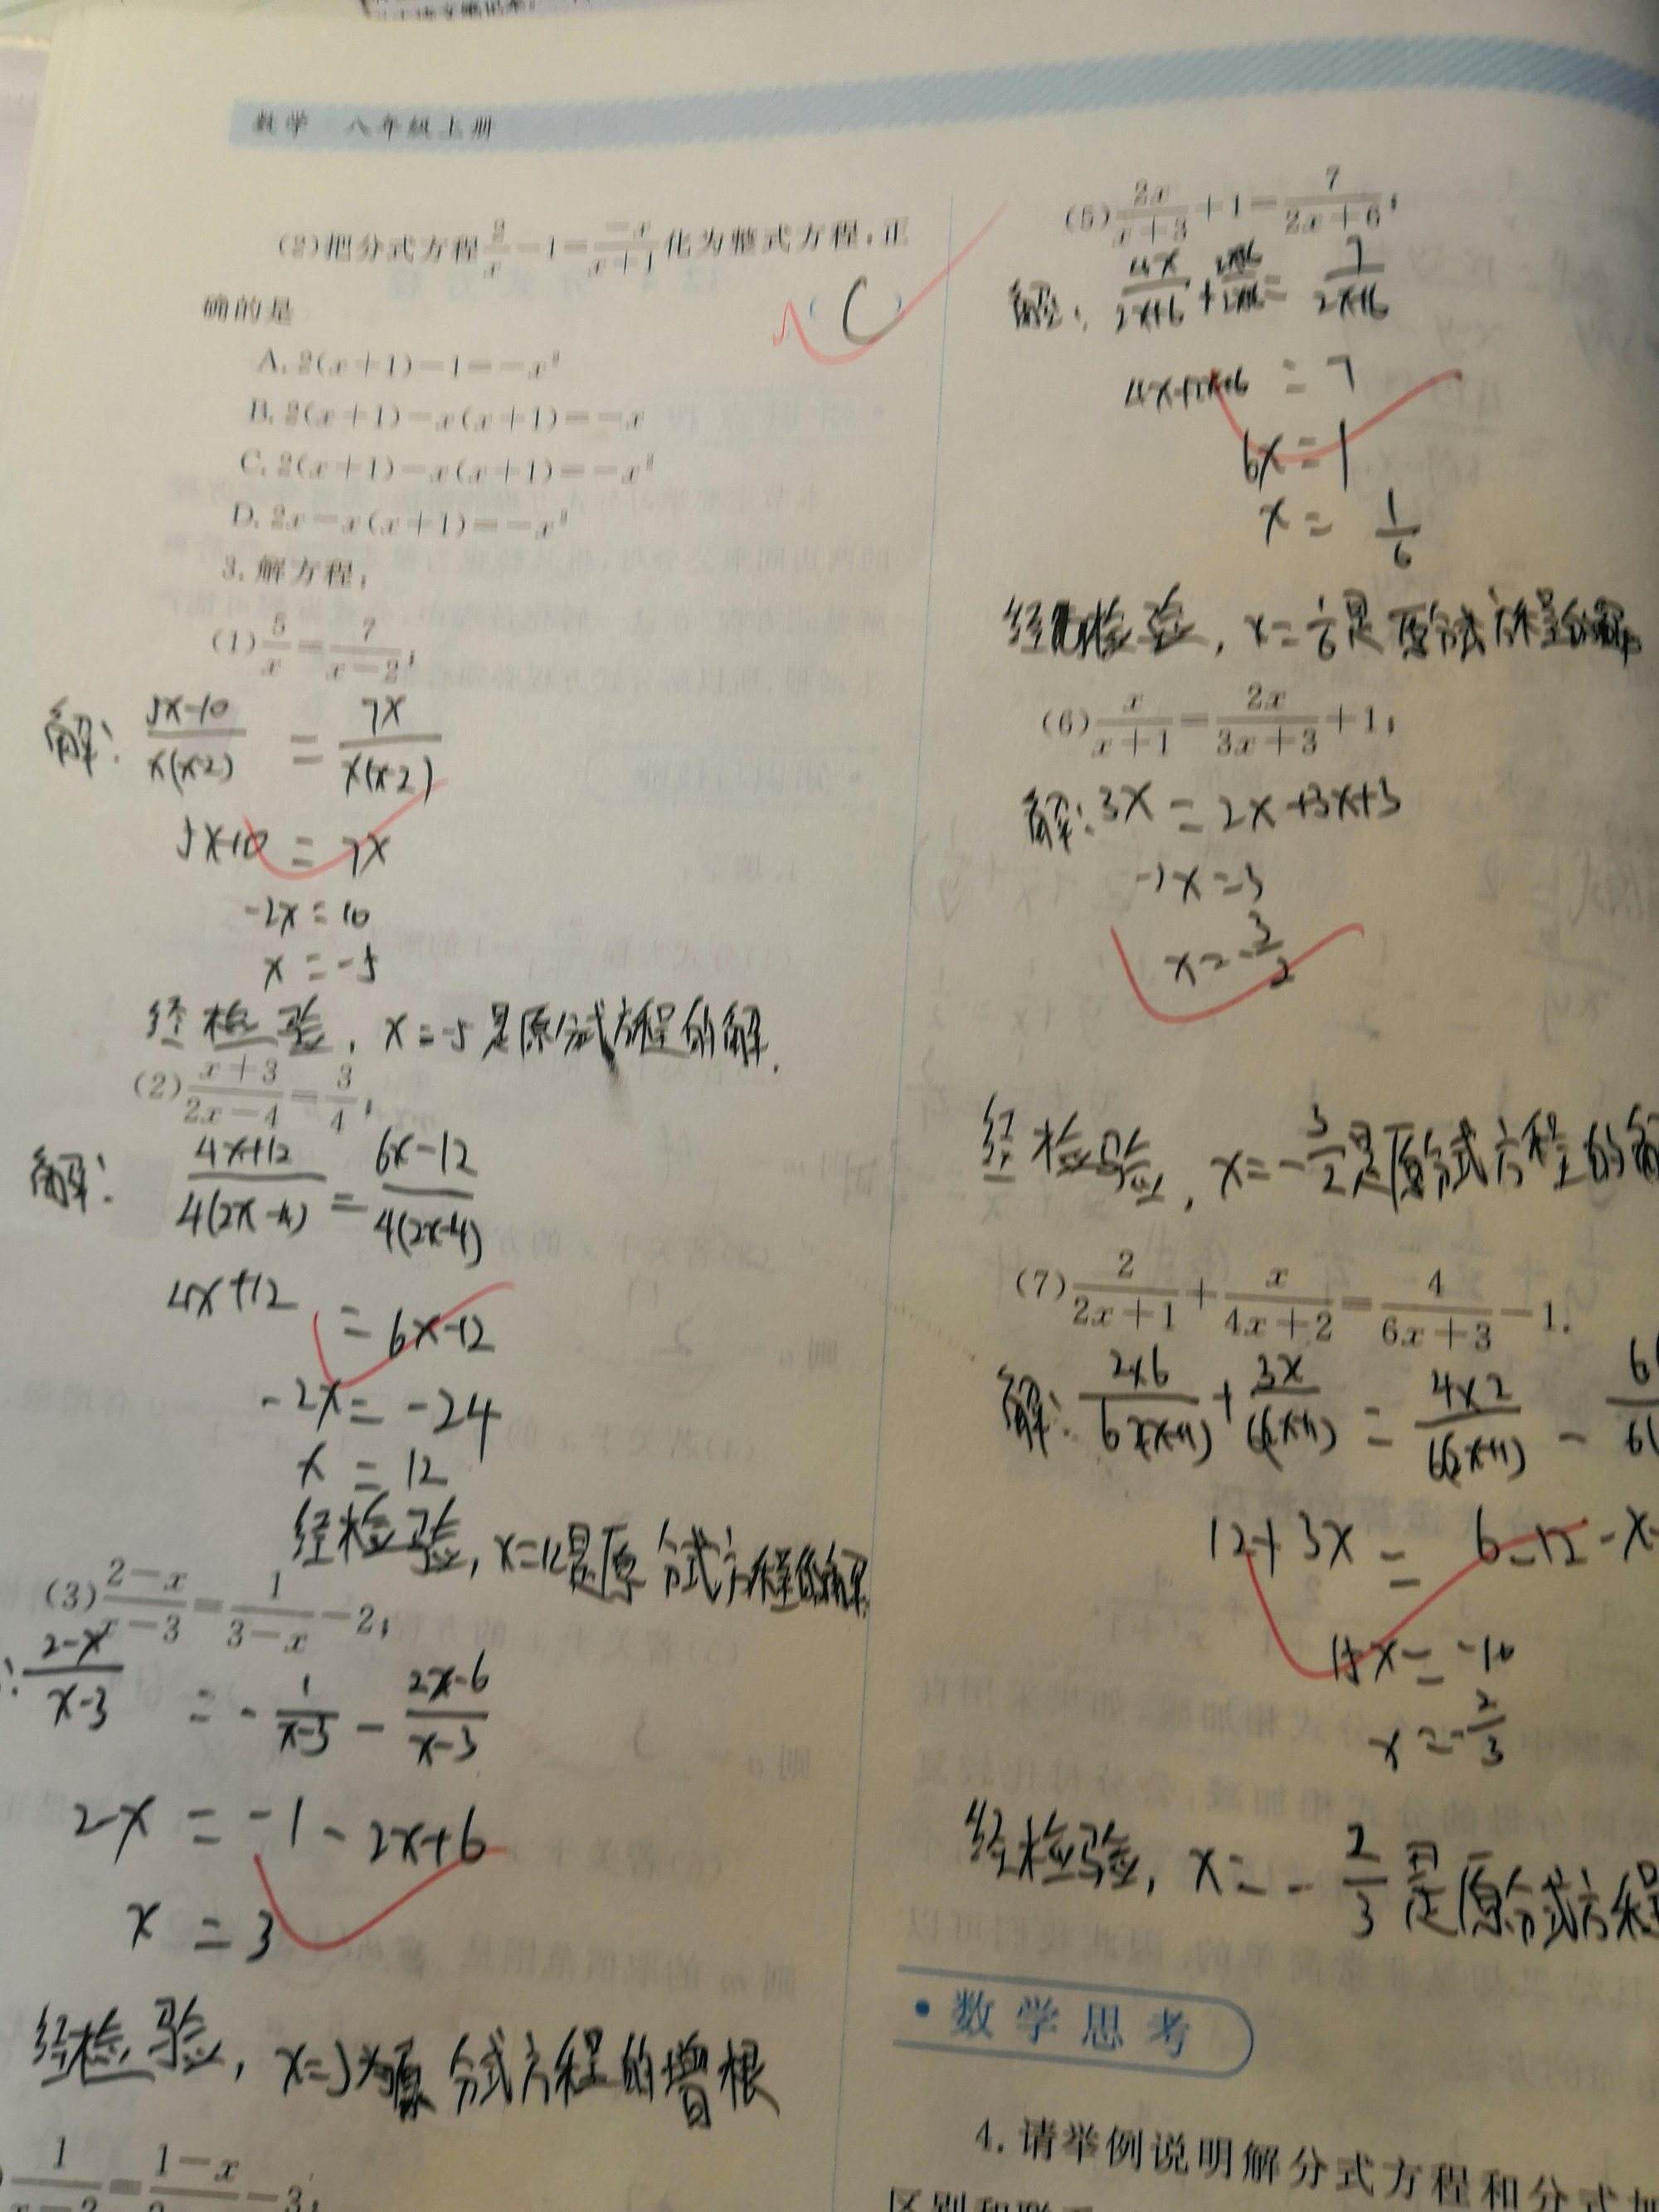 数学 八年级上册
(2)把分式方程 2/x - 1 = -x/(x+1) 化为整式方程,正
确的是 ( C )
A. 2(x+1)-1=-x²
B. 2(x+1)-x(x+1)=-x
C. 2(x+1)-x(x+1)=-x²
D. 2x-x(x+1)=-x²
3. 解方程:
(1) 5/x = 7/(x-2);
解: (5x-10)/(x(x-2)) = 7x/(x(x-2))
5x-10 = 7x
-2x = 10
x = -5
经检验, x=-5是原分式方程的解.
(2) (x+3)/(2x-4) = 3/4;
解: (4x+12)/(4(2x-4)) = (6x-12)/(4(2x-4))
4x+12 = 6x-12
-2x = -24
x = 12
经检验, x=12是原分式方程的解
(3) (2-x)/(x-3) = 1/(3-x) - 2;
: (2-x)/(x-3) = - 1/(x-3) - (2x-6)/(x-3)
2-x = -1-2x+6
x = 3
经检验, x=3为原分式方程的增根
1/ = 1-x/ - 3;
(5) 2x/(x+3) + 1 = 7/(2x+6);
解: 4x/(2x+6) + (2x+6)/(2x+6) = 7/(2x+6)
4x+2x+6 = 7
6x = 1
x = 1/6
经检验, x=1/6是原分式方程的解
(6) x/(x+1) = 2x/(3x+3) + 1;
解: 3x = 2x+3x+3
-2x = 3
x = -3/2
经检验, x=-3/2是原分式方程的解
(7) 2/(2x+1) + x/(4x+2) = 4/(6x+3) - 1.
解: 2×6/(6(2x+1)) + 3x/(6(2x+1)) = 4×2/(6(2x+1)) - 6(/6(
12+3x = -12-x-
15x = -10
x = -2/3
经检验, x=-2/3是原分式方程
·数学思考
4. 请举例说明解分式方程和分式加